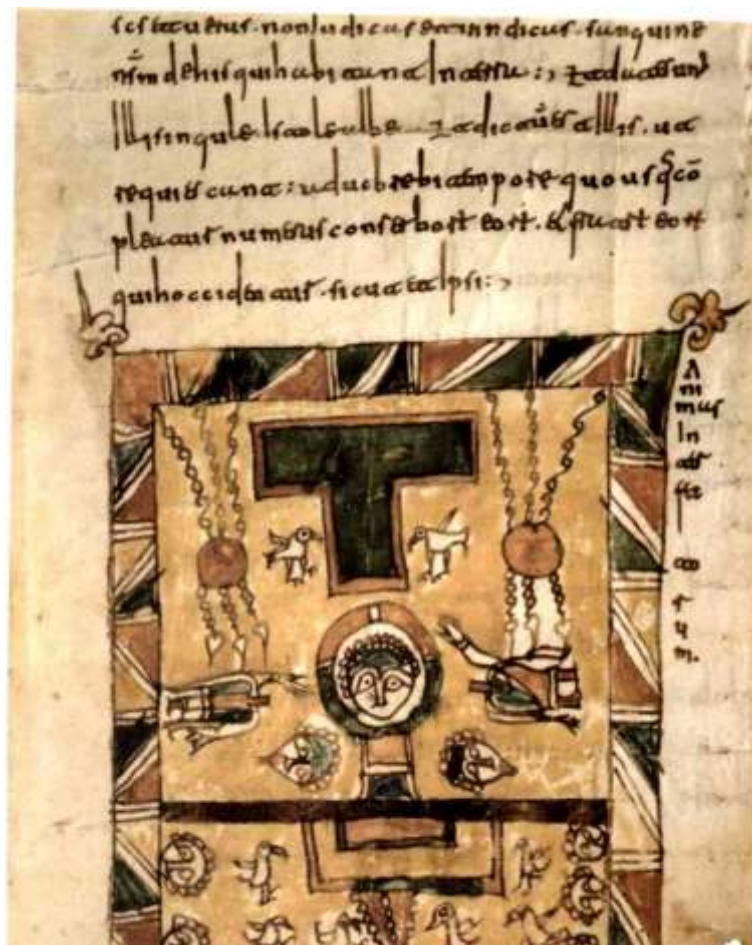 scs et uerus. non iudicas et uindicas. sanguine
nsm de his qui habitant In terra:, et date sunt
Illis singule stole albe et dictum est Illis. ut
requiescant: aduc brebi tempore quousq cō
pleatur numerus conserborum eorum. et fratrum eorum
qui hoccidendi sunt. sicut et Ipsi:,
A
ni
mas
In
ter
fec
to
r
u
m.